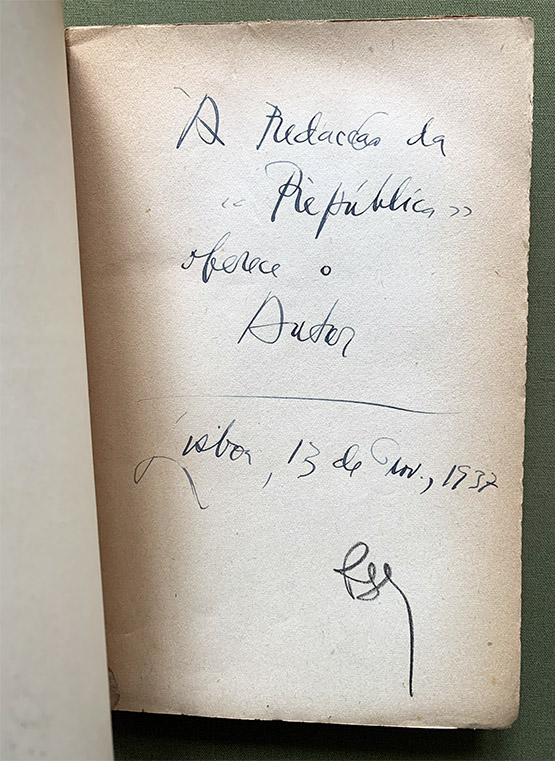 À Redacção da
«República»
oferece o
Autor
Lisboa, 13 de Nov., 1937